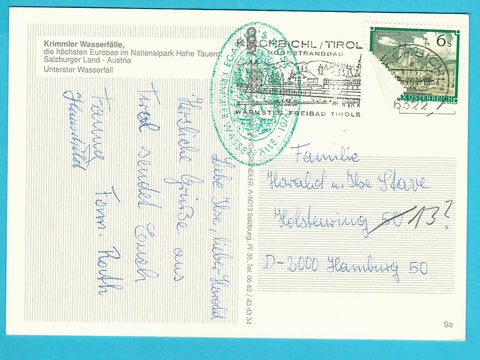 Krimmler Wasserfälle,
die höchsten Europas im Nationalpark Hohe Tauern
Salzburger Land - Austria
Unterster Wasserfall
KIRCHBICHL/TIROL
MOORSTRANDBAD
WÄRMSTES FREIBAD TIROLS
KRIMMLER WASSERFÄLLE
6s
REPUBLIK ÖSTERREICH
6322
Liebe Ilse, lieber Harald
Herzliche Grüße aus
Tirol sendet Euch
Fam.
A-5013 Salzburg, PF. 35, Tel. 06 62 / 43 43 34
Familie
Harald u. Ilse Stave
Holstenring 50 13?
D-2000 Hamburg 50
So